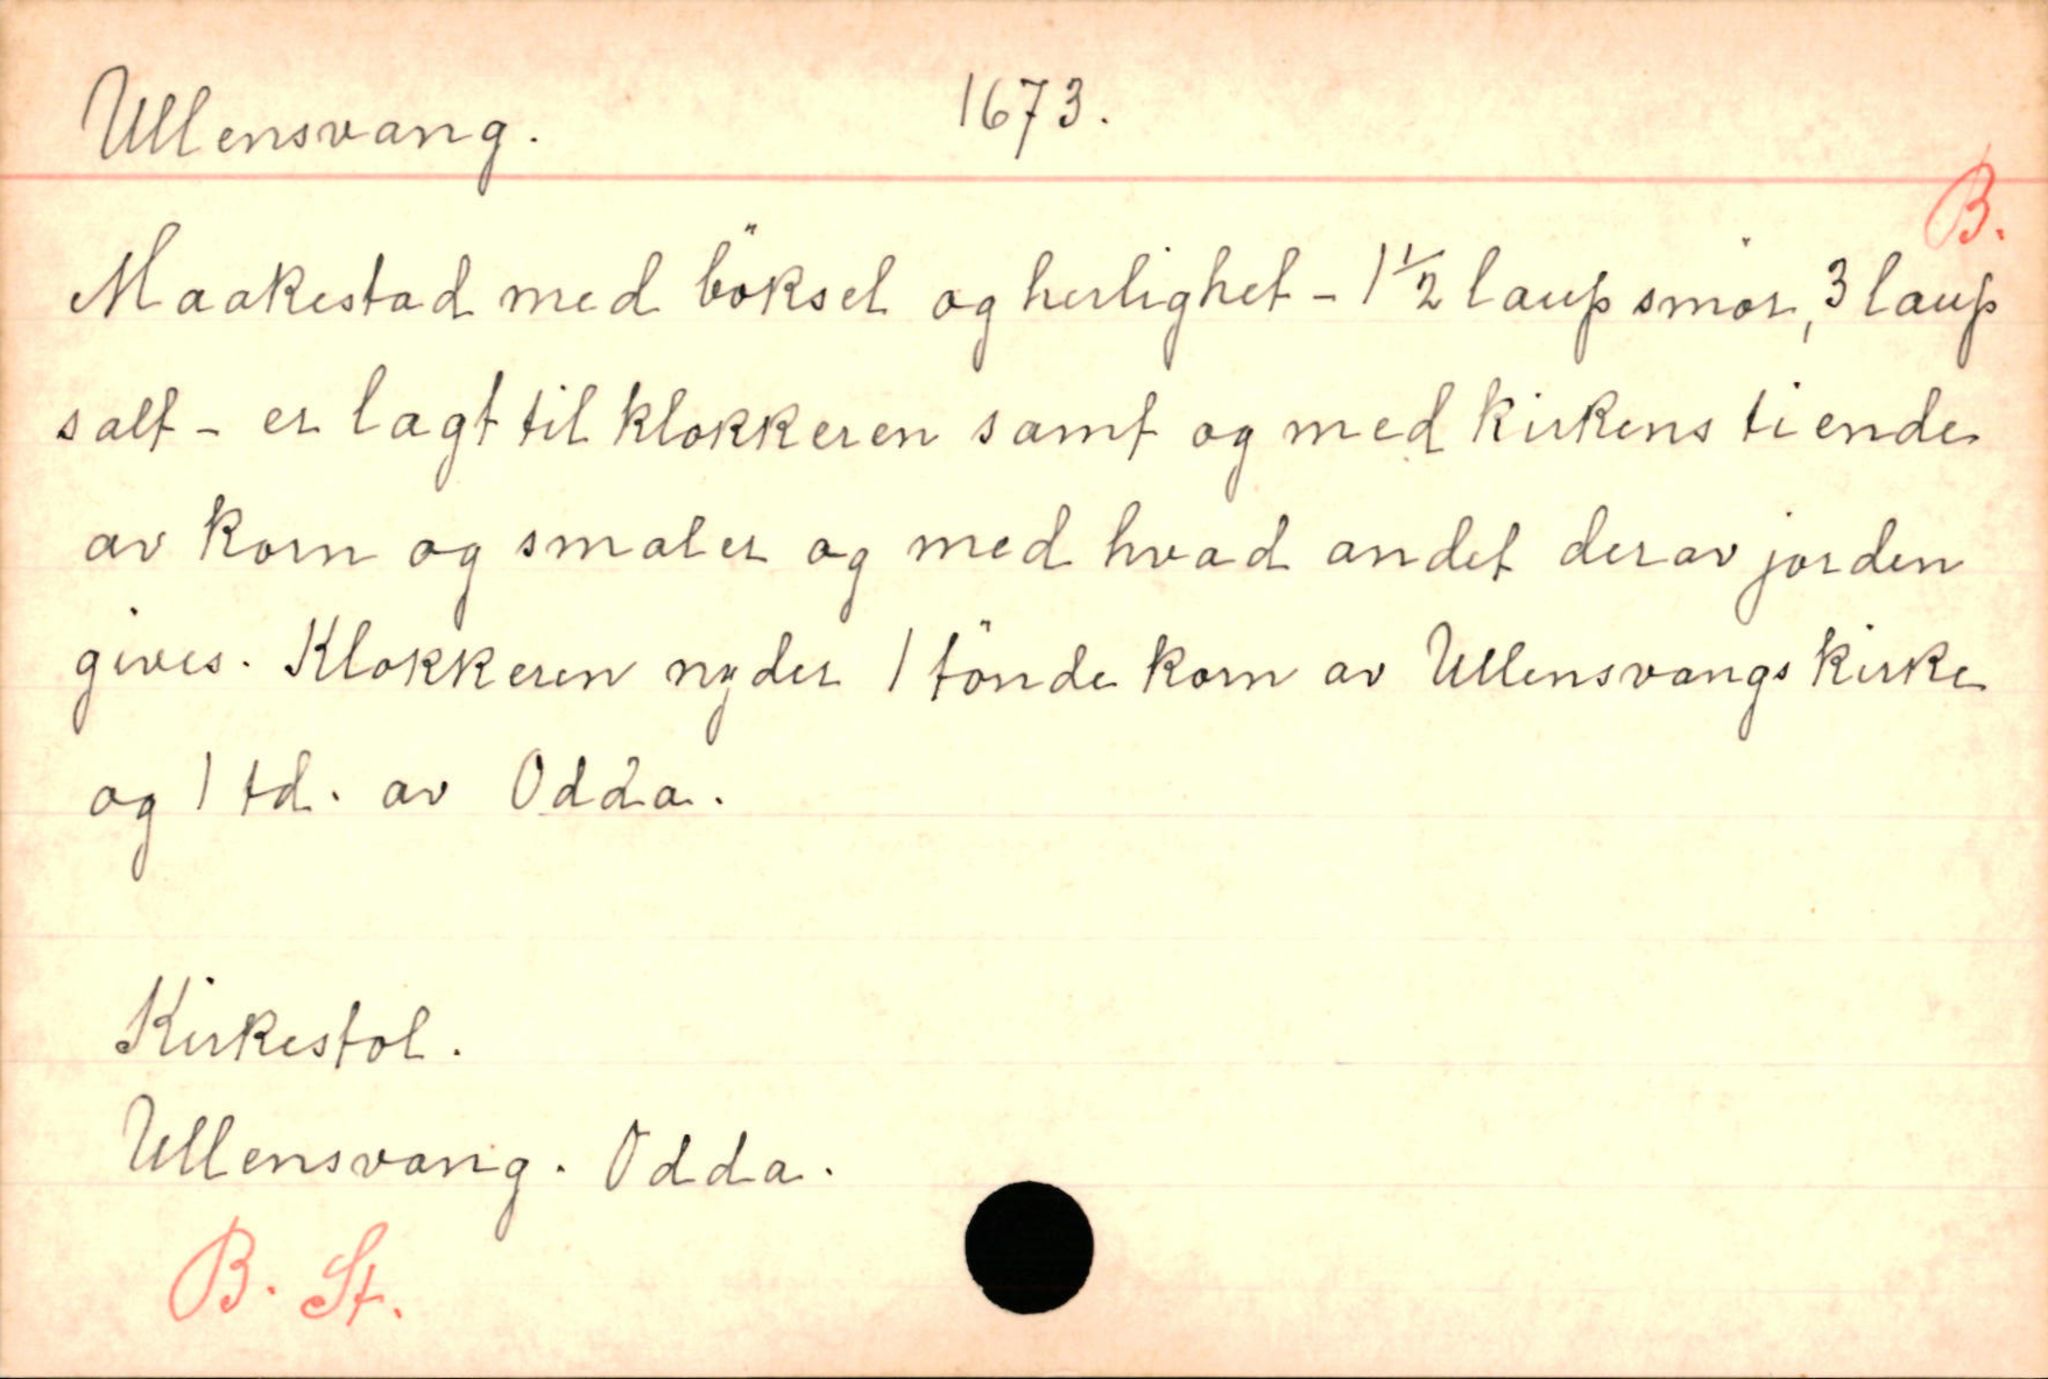 Ullensvang. 1673.
B.
Maakestad med böksel og herlighet - 1 1/2 laup smör, 3 laup
salt - er lagt til klokkeren samt og med kirkens tiende
av korn og smaler og med hvad andet derav jorden
gives. Klokkeren nyder 1 tönde korn av Ullensvangs kirke
og 1 td. av Odda.
Kirkestol.
Ullensvang. Odda.
B. St.